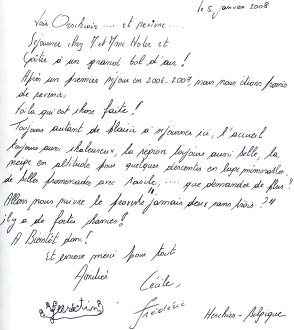 le 5 janvier 2008
Voir Orschwir .... et revivre....
Séjourner chez M et Mme Holer et
Goûter à un grand bol d'air !
Après un premier séjour en 2006-2007, mais nous étions promis
de revenir,
Voilà qui est chose faite !
Toujours autant de plaisir à séjourner ici, l'accueil
toujours aussi chaleureux, la région toujours aussi belle, la
neige en altitude pour quelques descentes en luge mémorables,
de belles promenades avec .... que demander de plus ?
Allons nous suivre le proverbe "jamais deux sans trois ?"
il y a de fortes chances !
A Bientôt donc !
Et encore merci pour tout
Amitiés
Cécile,
Frédéric
Herchies - Belgique